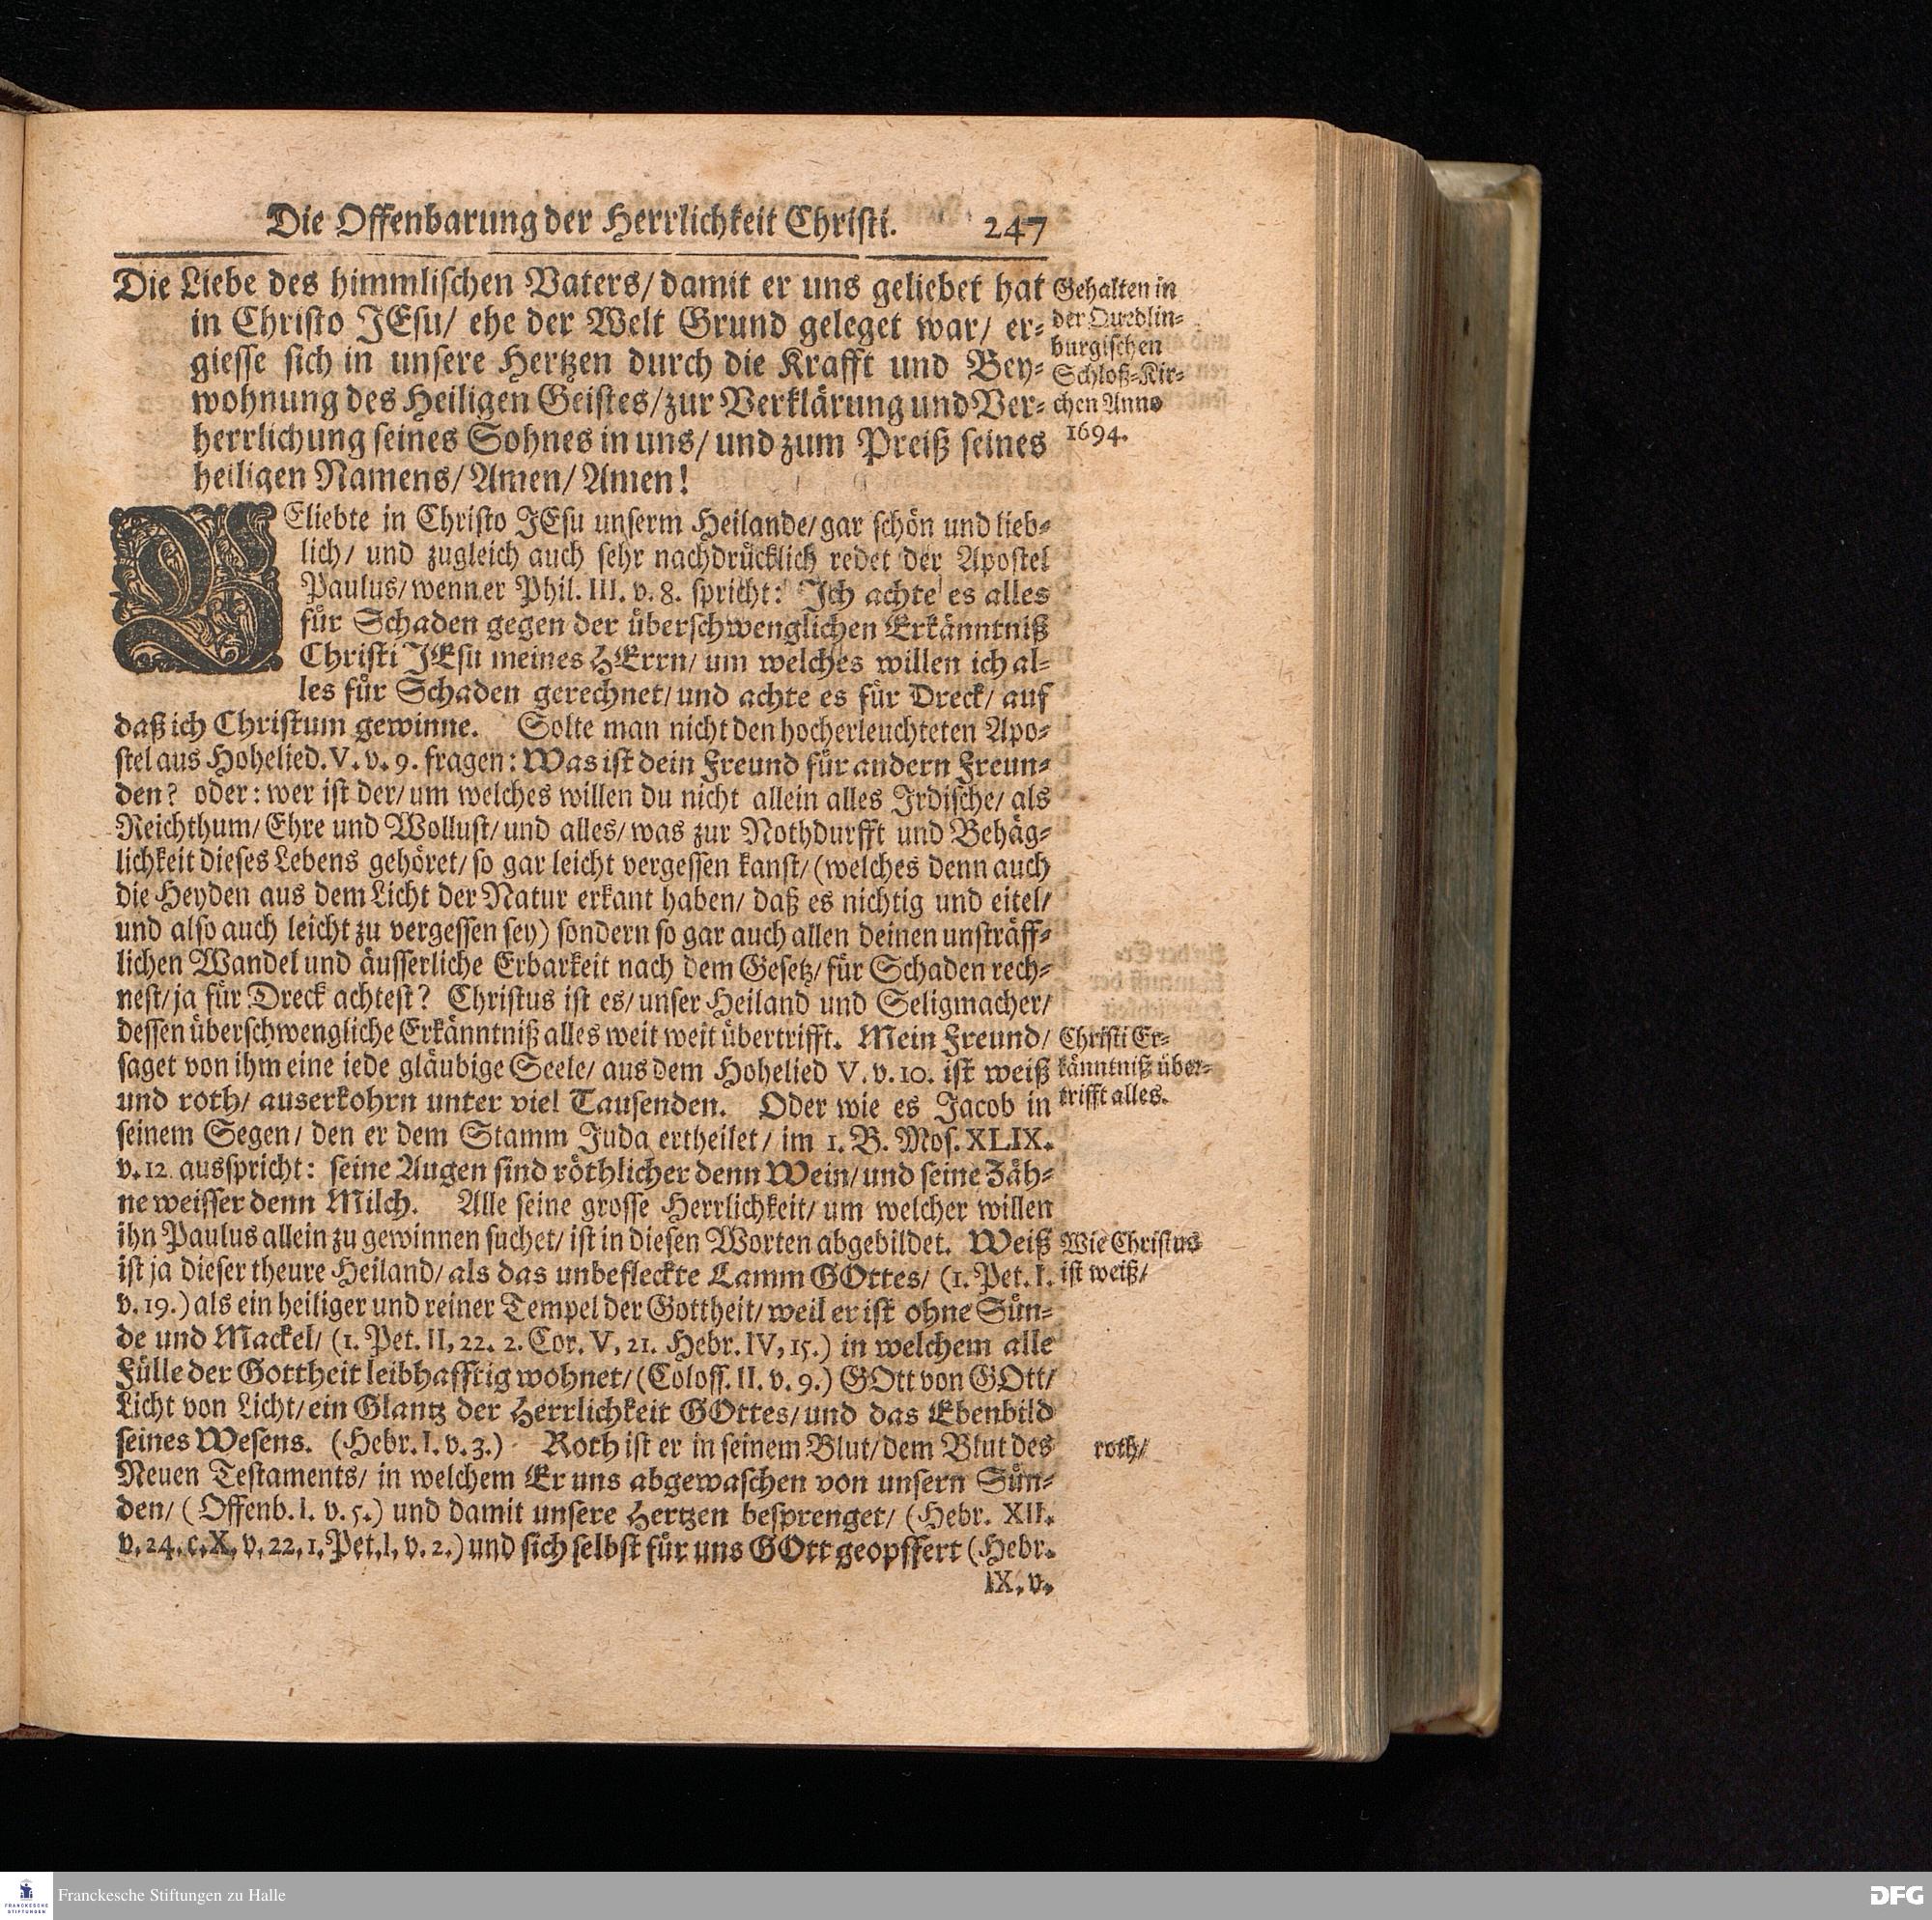 Die Offenbarung der Herrlichkeit Christi. 247
Die Liebe des himmlischen Vaters/ damit er uns geliebet hat
in Christo JEsu/ ehe der Welt Grund geleget war/ er-
giesse sich in unsere Hertzen durch die Krafft und Bey-
wohnung des Heiligen Geistes/ zur Verklärung und Ver-
herrlichung seines Sohnes in uns/ und zum Preiß seines
heiligen Namens/ Amen/ Amen!
Gehalten in
der Quedlin-
burgischen
Schloß-Kir-
chen Anno
1694.
GEliebte in Christo JEsu unserm Heilande/ gar schön und lieb-
lich/ und zugleich auch sehr nachdrücklich redet der Apostel
Paulus/ wenn er Phil. III. v. 8. spricht: Ich achte es alles
für Schaden gegen der überschwenglichen Erkänntniß
Christi JEsu meines HErrn/ um welches willen ich al-
les für Schaden gerechnet/ und achte es für Dreck/ auf
daß ich Christum gewinne. Solte man nicht den hocherleuchteten Apo-
stel aus Hohelied. V. v. 9. fragen: Was ist dein Freund für andern Freun-
den? oder: wer ist der/ um welches willen du nicht allein alles Irdische/ als
Reichthum/ Ehre und Wollust/ und alles/ was zur Nothdurfft und Behäg-
lichkeit dieses Lebens gehöret/ so gar leicht vergessen kanst/ (welches denn auch
die Heyden aus dem Licht der Natur erkant haben/ daß es nichtig und eitel/
und also auch leicht zu vergessen sey) sondern so gar auch allen deinen unsträff-
lichen Wandel und äusserliche Erbarkeit nach dem Gesetz/ für Schaden rech-
nest/ ja für Dreck achtest? Christus ist es/ unser Heiland und Seligmacher/
dessen überschwengliche Erkänntniß alles weit weit übertrifft. Mein Freund/
saget von ihm eine iede gläubige Seele/ aus dem Hohelied V. v. 10. ist weiß
und roth/ auserkohrn unter viel Tausenden. Oder wie es Jacob in
seinem Segen/ den er dem Stamm Juda ertheilet/ im 1. B. Mos. XLIX.
v. 12. ausspricht: seine Augen sind röthlicher denn Wein/ und seine Zäh-
ne weisser denn Milch. Alle seine grosse Herrlichkeit/ um welcher willen
ihn Paulus allein zu gewinnen suchet/ ist in diesen Worten abgebildet. Weiß
ist ja dieser theure Heiland/ als das unbefleckte Lamm GOttes/ (1. Pet. I.
v. 19.) als ein heiliger und reiner Tempel der Gottheit/ weil er ist ohne Sün-
de und Mackel/ (1. Pet. II, 22. 2. Cor. V, 21. Hebr. IV, 15.) in welchem alle
Fülle der Gottheit leibhafftig wohnet/ (Coloss. II. v. 9.) GOtt von GOtt/
Licht von Licht/ ein Glantz der Herrlichkeit GOttes/ und das Ebenbild
seines Wesens. (Hebr. I. v. 3.) Roth ist er in seinem Blut/ dem Blut des
Neuen Testaments/ in welchem Er uns abgewaschen von unsern Sün-
den/ (Offenb. I. v. 5.) und damit unsere Hertzen besprenget/ (Hebr. XII.
v. 24. c. X, v. 22, 1. Pet. I, v. 2.) und sich selbst für uns GOtt geopffert (Hebr.
IX, v.
Christi Er-
känntniß über-
trifft alles.
Wie Christus
ist weiß/
roth/
Franckesche Stiftungen zu Halle
FRANCKESCHE
STIFTUNGEN
DFG